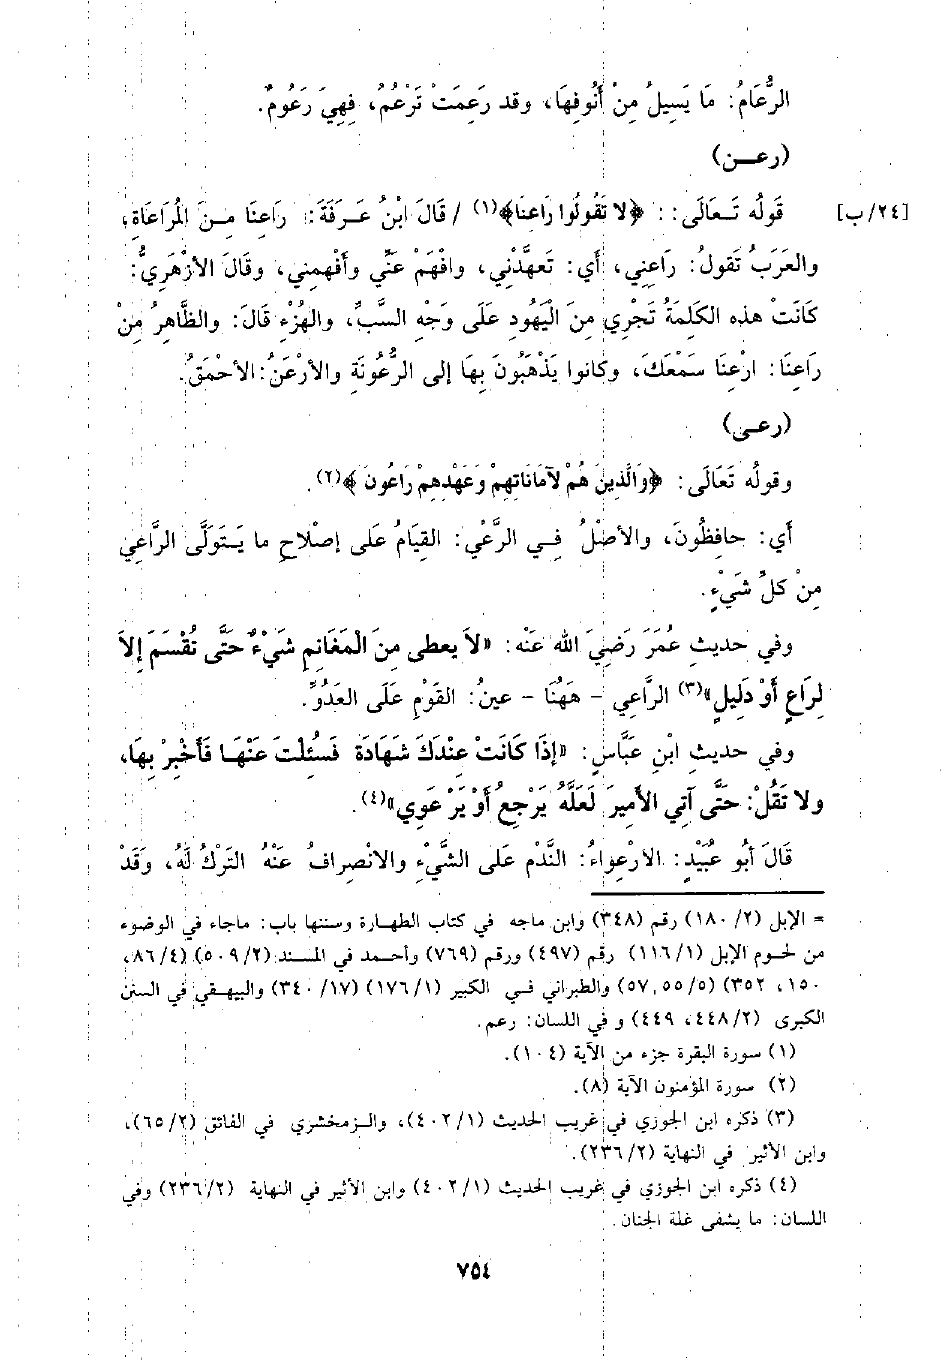 الرُّعَامُ: مَا يَسِيلُ مِنْ أُنُوفِهَا، وقد رَعِمَتْ تَرْعُمُ، فِهِيَ رَعُومٌ.
(رعـن)
[٢٤/ب] قَولُه تَـعَالَى: : ﴿لا تَقُولُوا رَاعِنَا﴾(١) / قَالَ ابْنُ عَـرَفَةَ: رَاعِنَا مِـنَ المُرَاعَاةِ،
والعَرَبُ تَقولُ: رَاعِنِي، أي: تَعهَّدْنِي، وافْهَمْ عَنِّي وأَفْهِمنِي، وقَالَ الأزْهَرِيُّ:
كَانَتْ هذه الكَلِمَةُ تَجْرِي مِنَ اليَهُودِ عَلَى وَجْهِ السَّبِّ، والهُزْءِ قَالَ: والظَّاهِرُ مِنْ
رَاعِنَا: ارْعِنَا سَمْعَكَ، وكانوا يَذْهَبُونَ بِهَا إلى الرُّعُونَةِ والأرْعَنُ: الأحْمَقُ.
(رعـى)
وقولُه تَعَالَى: ﴿وَالَّذِينَ هُمْ لأَمَانَاتِهِمْ وَعَهْدِهِمْ رَاعُونَ﴾(٢).
أَي: حافِظُونَ، والأصْلُ فـي الرَّعْيِ: القِيَامُ عَلَى إصْلاحِ ما يَـتَوَلَّى الرَّاعِي
مِنْ كلِّ شَيْءٍ.
وفي حديثِ عُمَرَ رَضِيَ الله عَنْه: «لاَ يعطى مِنَ الْمَغَانِمِ شَيْءٌ حَتَّى تُقْسَمَ إِلاَ
لِرَاعٍ أَوْ دَلِيلٍ»(٣) الرَّاعِي - هَهُنَا - عينُ: القَوْمِ عَلَى العَدُوِّ.
وفي حديث ابْنِ عَبَّاسٍ: «إذَا كَانَتْ عِنْدَكَ شَهَادَةٌ فَسُئِلتَ عَنْهَـا فَأَخْبِرْ بِهَا،
ولا تَقُلْ: حَتَّى آتِي الأَمِيرَ لَعَلَّهُ يَرْجِعُ أَوْ يَرْعَوِي»(٤).
قَالَ أَبُو عُبَيْدٍ: الارْعِواءُ: النَّدْمِ عَلى الشَّيْءِ والانْصِرافُ عَنْهُ التَرْكُ لَهُ، وَقَدْ
= الإبل (٢/ ١٨٠) رقم (٣٤٨) وابن ماجه في كتاب الطهـارة وسننها باب: ماجاء في الوضوء
من لحوم الإبل (١/ ١١٦) رقم (٤٩٧) ورقم (٧٦٩) وأحـمد في المسند (٢/ ٥٠٩) (٤/ ٨٦،
١٥٠، ٣٥٢) (٥/ ٥٥، ٥٧) والطبراني فـي الكبير (١/ ١٧٦) (١٧/ ٣٤٠) والبيهـقي في السنن
الكبرى (٢/ ٤٤٨، ٤٤٩) و في اللسان: رعم.
(١) سورة البقرة جزء من الآية (١٠٤).
(٢) سورة المؤمنون الآية (٨).
(٣) ذكره ابن الجوزي في غريب الحديث (١/ ٤٠٢)، والـزمخشري في الفائق (٢/ ٦٥)،
وابن الأثير في النهاية (٢/ ٢٣٦).
(٤) ذكره ابن الجوزي في غريب الحديث (١/ ٤٠٢) وابن الأثير في النهاية (٢/ ٢٣٦) وفي
اللسان: ما يشفى غلة الجنان.
٧٥٤